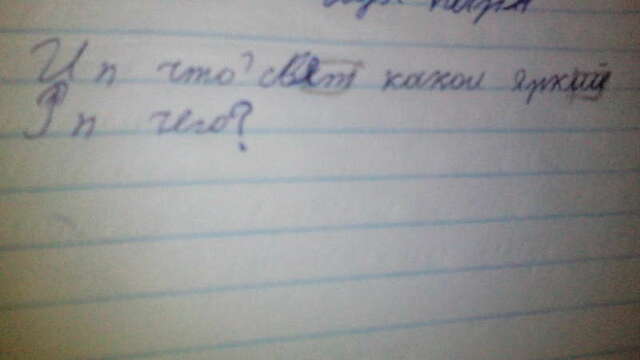 И п что? свет какой яркий
Р п чего?